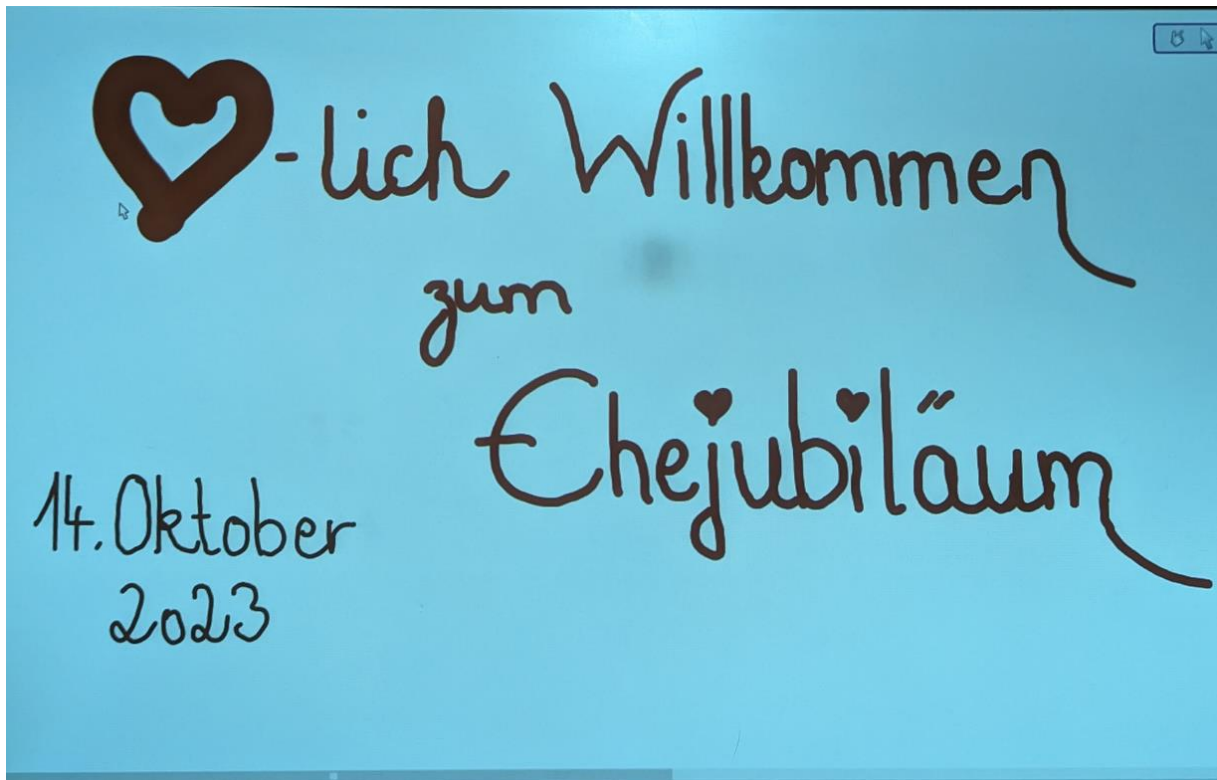 ♥-lich Willkommen
zum
Ehejubiläum
14. Oktober
2023